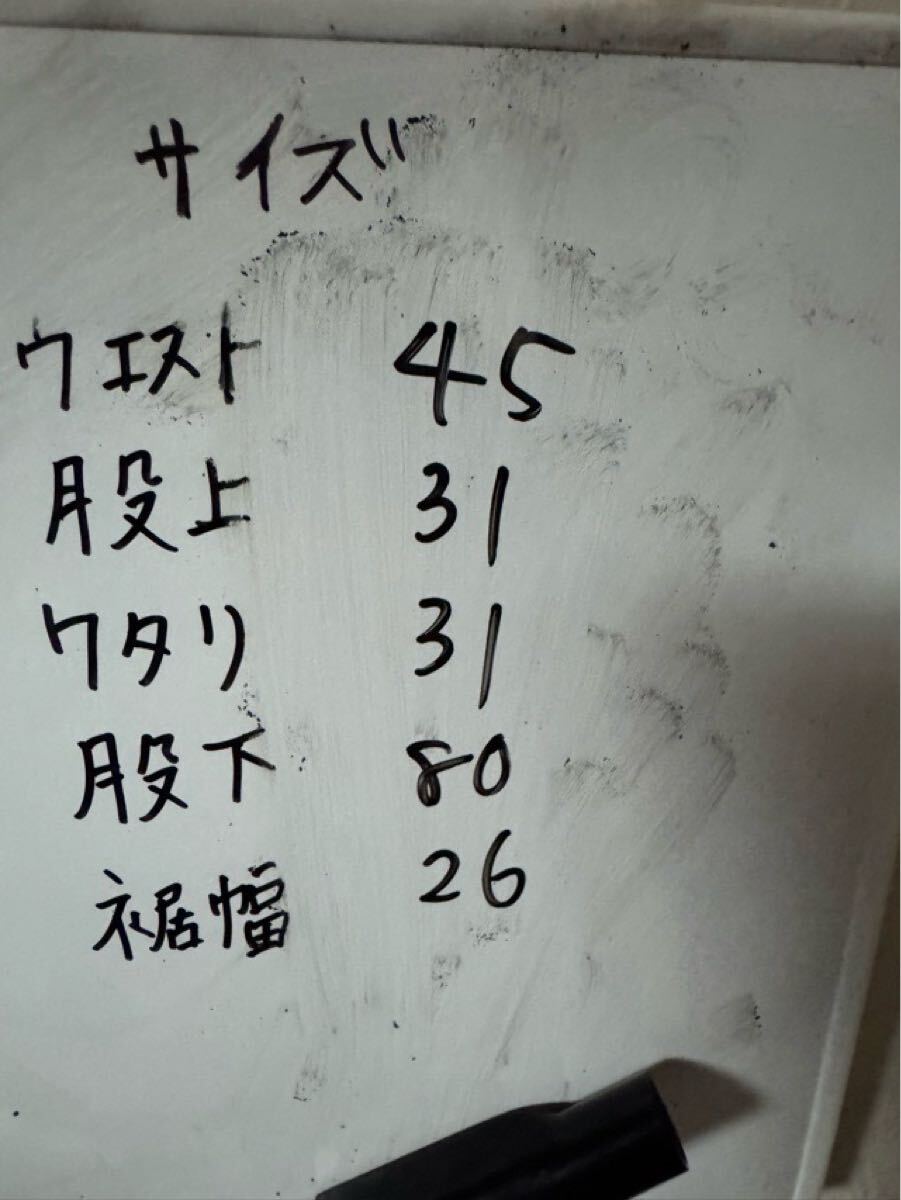 サイズ
ウエスト 45
股上 31
ワタリ 31
股下 80
裾幅 26